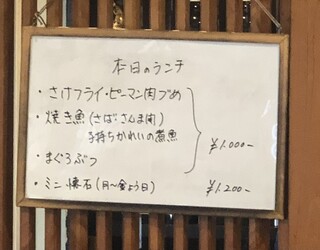 本日のランチ
・さけフライ・ピーマン肉づめ
・焼き魚(さば・さんま有)
子持ちかれいの煮魚
・まぐろぶつ
¥1.000-
・ミニ懐石(月〜金よう日)
¥1.200-